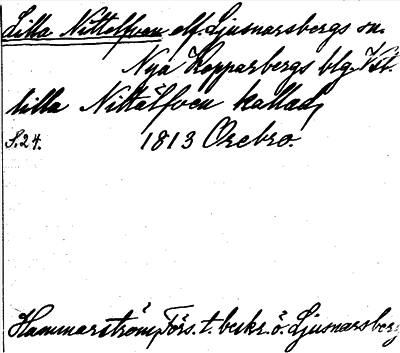 Lilla Nittelfven elf. Ljusnarsbergs sn.
Nya Kopparbergs blg. Vstl.
lilla Nittälfven kallad,
S. 24. 1813 Örebro.
Hammarström, Förs. t. beskr. ö. Ljusnarsberg